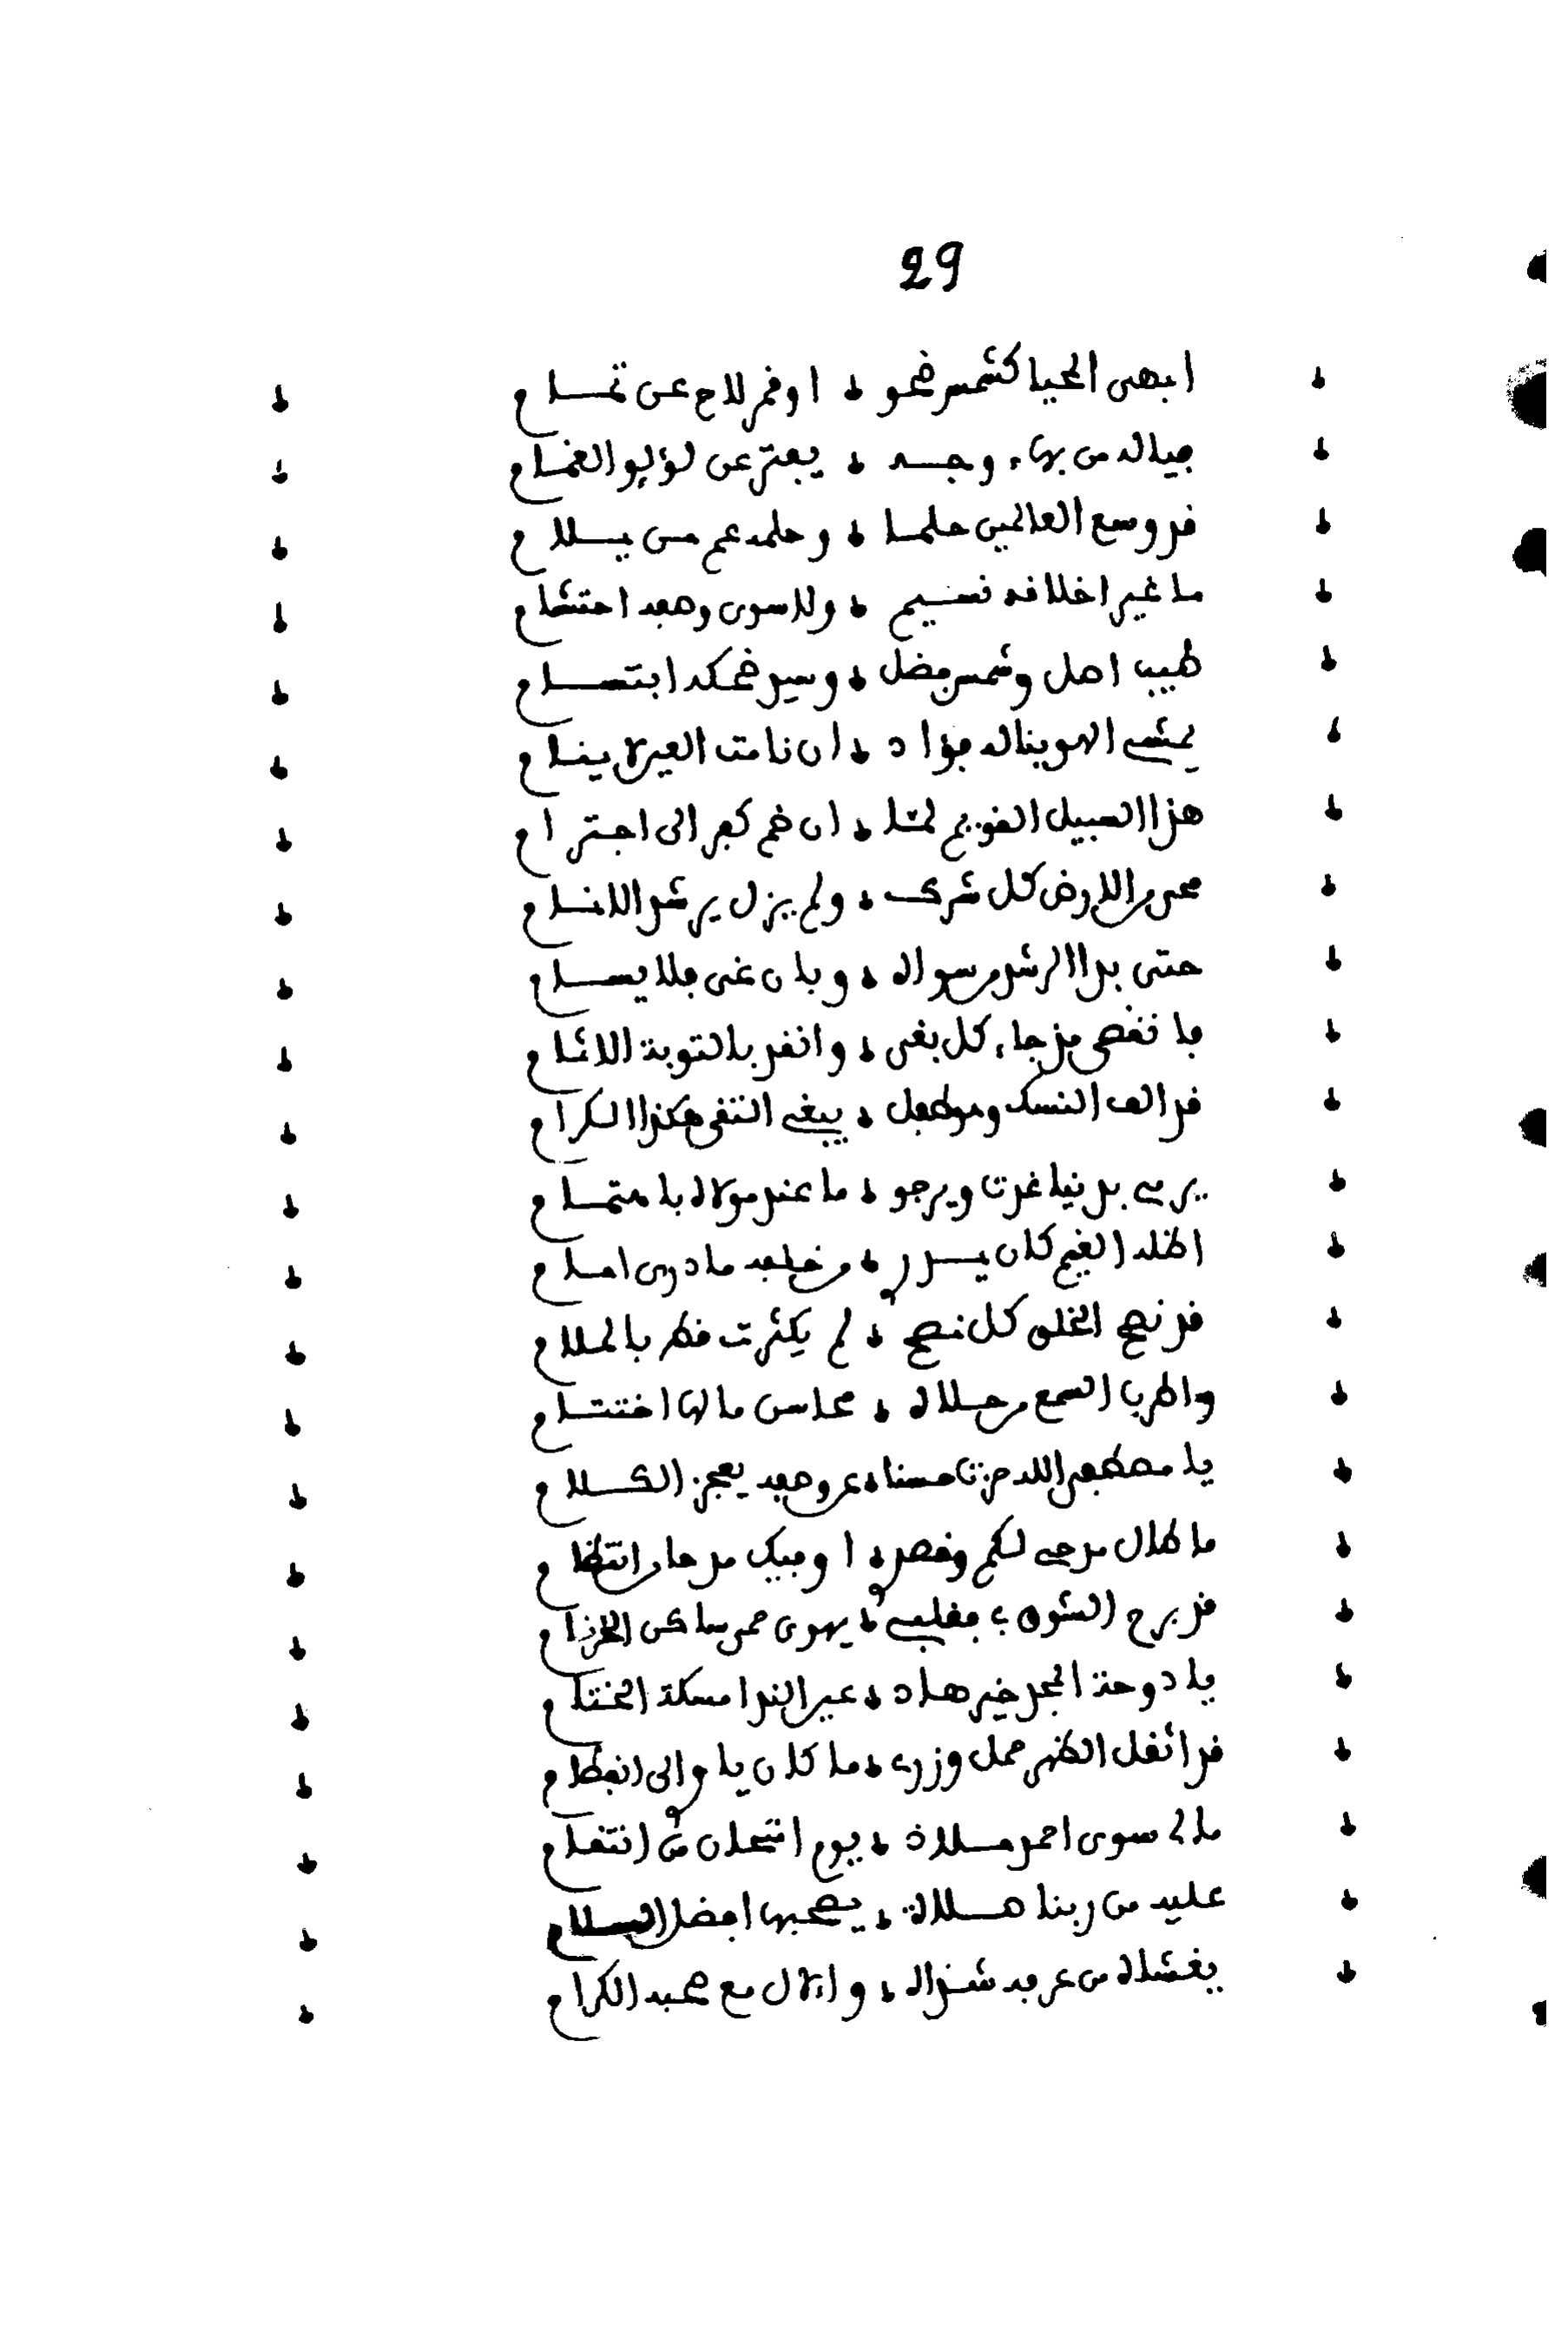 29
ابهى المحيا كشمس ضحو * او قمر لاح عن تمام
فياله من بهاء وجه * يفتر عن لؤلؤ الغمام
قد وسع العالمين حلما * وحلمه عم من يلام
ما غير اخلاقه نسيم * ولا سوى وصفه احتشام
طيب اصل وشمس فضل * وسيو ضحكه ابتسام
يمشى الهوينا له فؤاد * ان نامت العين لا ينام
هذا السبيل القويم لما * ان ضم كفر الى اجترام
محى من الارض كل شرك * ولم يزل يرشد الانام
حتى بدا الرشد من سواه * وبان غى فلا يسام
فانقصى مذ جاء كل بغى * وانقد بالتوبة الاثام
قد الف النسك وهو طفل * يبغى التقى هكذا الكرام
يرمى بدنيا غرت ويرجو * ما عند مولاه باهتمام
اظله الغيم كان يسرر * من خلفه ما درى امام
قد نصح الخلق كل نصح * لم يكثرت قط بالملام
واطرب السمع من حلاه * محاسن مالها اختتام
يا مصطفى الله حزت حسنا * عن وصفه يعجز الكلام
ما طال مدحى لكم وقصر * او فيك مدحا ر انتظام
قد برح الشوق بى فقلبى * يهوى حمى ساكن الخزام
يا دوحة المجد خير هاد * عبير الندا مسكة الختام
قد اثقل الظهر حمل وزرى * ما كان ياو الى انفطام
مالى سوى احمد ملاذ * يوم امتحان من انتقام
عليه من ربنا صلاة * يصحبها افضل السلام
يغشاه من عرفه شذاه * والال مع صحبه الكرام